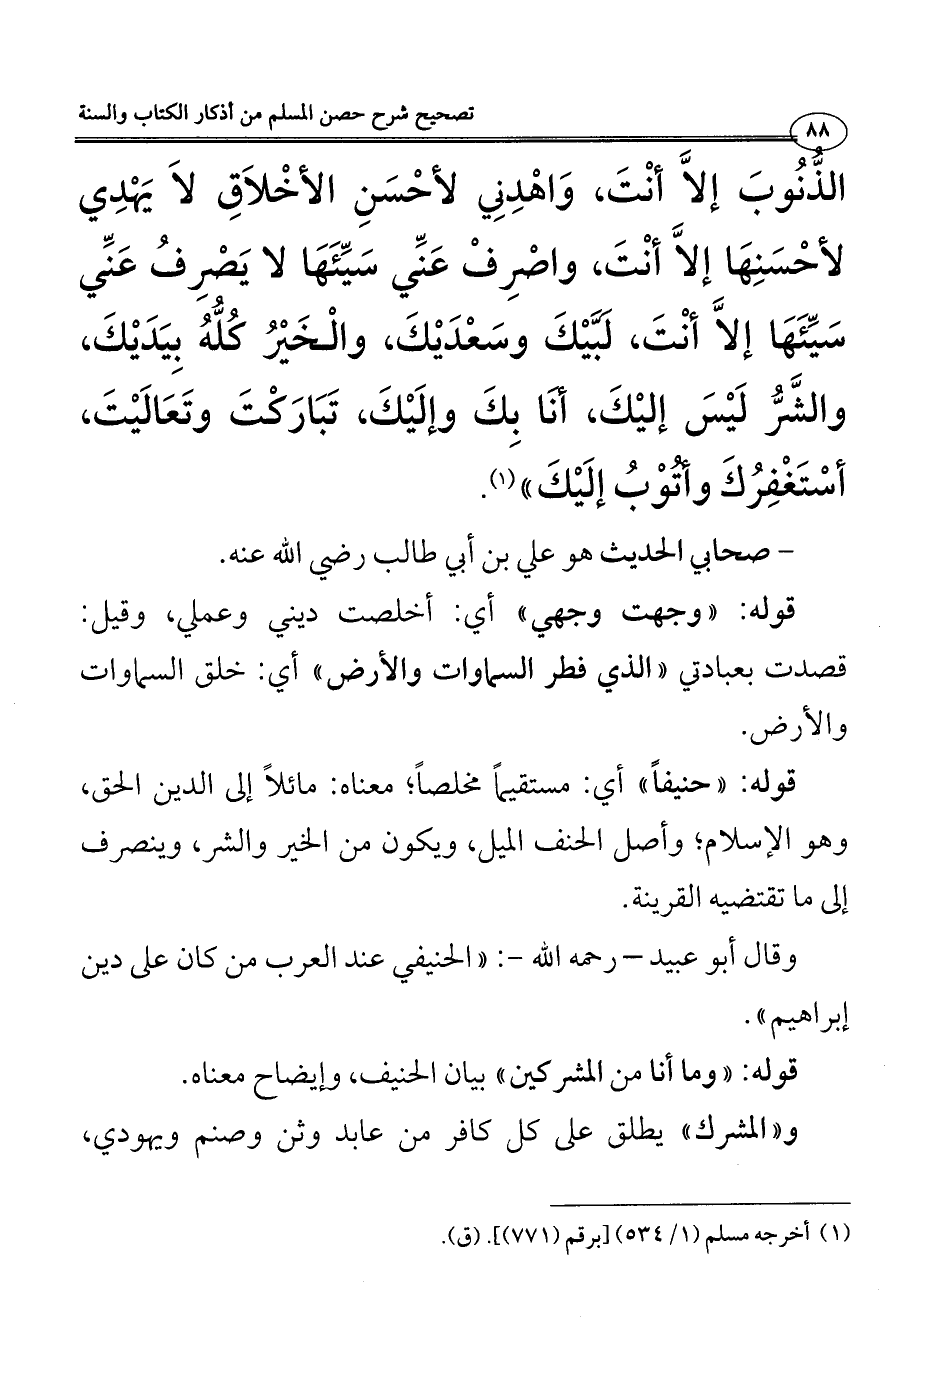 تصحيح شرح حصن المسلم من أذكار الكتاب والسنة
٨٨
الذُّنُوبَ إلاَّ أنْتَ، وَاهْدِنِي لأحْسَنِ الأخْلاَقِ لاَ يَهْدِي
لأحْسَنِهَا إلاَّ أنْتَ، واصْرِفْ عَنِّي سَيِّئَهَا لا يَصْرِفُ عَنِّي
سَيِّئَهَا إلاَّ أنْتَ، لَبَّيْكَ وسَعْدَيْكَ، والْخَيْرُ كُلُّهُ بِيَدَيْكَ،
والشَّرُّ لَيْسَ إليْكَ، أنَا بِكَ وإلَيْكَ، تَبَارَكْتَ وتَعَالَيْتَ،
أسْتَغْفِرُكَ وأتُوْبُ إلَيْكَ»(١).
– صحابي الحديث هو علي بن أبي طالب رضي الله عنه.
قوله: «وجهت وجهي» أي: أخلصت ديني وعملي، وقيل:
قصدت بعبادتي «الذي فطر السماوات والأرض» أي: خلق السماوات
والأرض.
قوله: «حنيفاً» أي: مستقيماً مخلصاً؛ معناه: مائلاً إلى الدين الحق،
وهو الإسلام؛ وأصل الحنف الميل، ويكون من الخير والشر، وينصرف
إلى ما تقتضيه القرينة.
وقال أبو عبيد – رحمه الله –: «الحنيفي عند العرب من كان على دين
إبراهيم».
قوله: «وما أنا من المشركين» بيان الحنيف، وإيضاح معناه.
و«المشرك» يطلق على كل كافر من عابد وثن وصنم ويهودي،
(١) أخرجه مسلم (١/ ٥٣٤) [برقم (٧٧١)]. (ق).